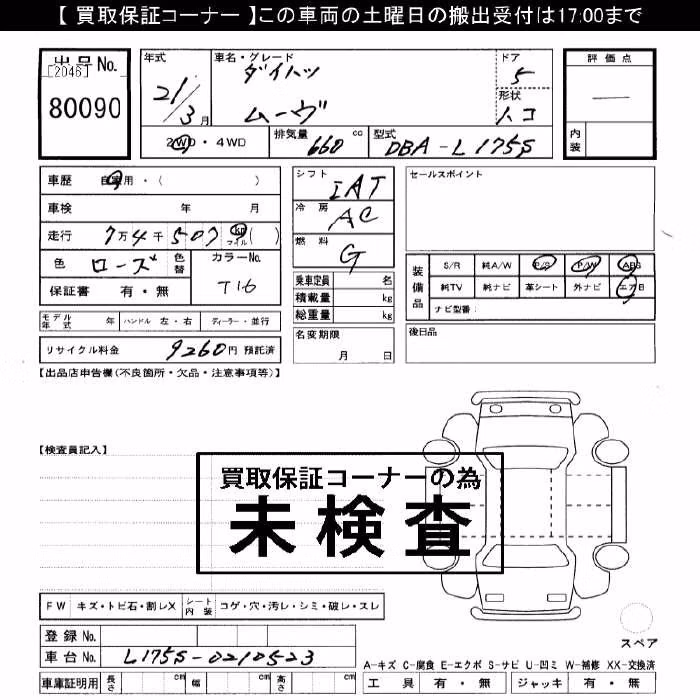 【 買取保証コーナー 】この車両の土曜日の搬出受付は17:00まで
出品 No.
[2046]
80090
年式
21/3月
車名・グレード
ダイハツ
ムーヴ
ドア
5
形状
ハコ
評価点
—
内装
2WD・4WD
排気量 660 cc
型式 DBA-L175S
車歴 自家用・( )
車検 年 月
走行 7万4千507 km マイル ( )
色 ローズ 色替
カラーNo.
T16
保証書 有・無
シフト IAT
冷房 AC
燃料 G
乗車定員 名
積載量 kg
総重量 kg
名変期限
月 日
セールスポイント
装備品
S/R 純A/W P/S P/W ABS
純TV 純ナビ 革シート 外ナビ エアB
ナビ型番:
後日品
モデル年式 年 ハンドル 左・右 ディーラー・並行
リサイクル料金 9260円 預託済
【出品店申告欄(不良箇所・欠品・注意事項等)】
【検査員記入】
買取保証コーナーの為
未検査
FW キズ・トビ石・割レX シート内装 コゲ・穴・汚レ・シミ・破レ・スレ
登録 No.
車台 No. L175S-0210523
車庫証明用 長さ cm 幅 cm 高さ cm
スペア
A-キズ C-腐食 E-エクボ S-サビ U-凹ミ W-補修 XX-交換済
工具 有・無 ジャッキ 有・無